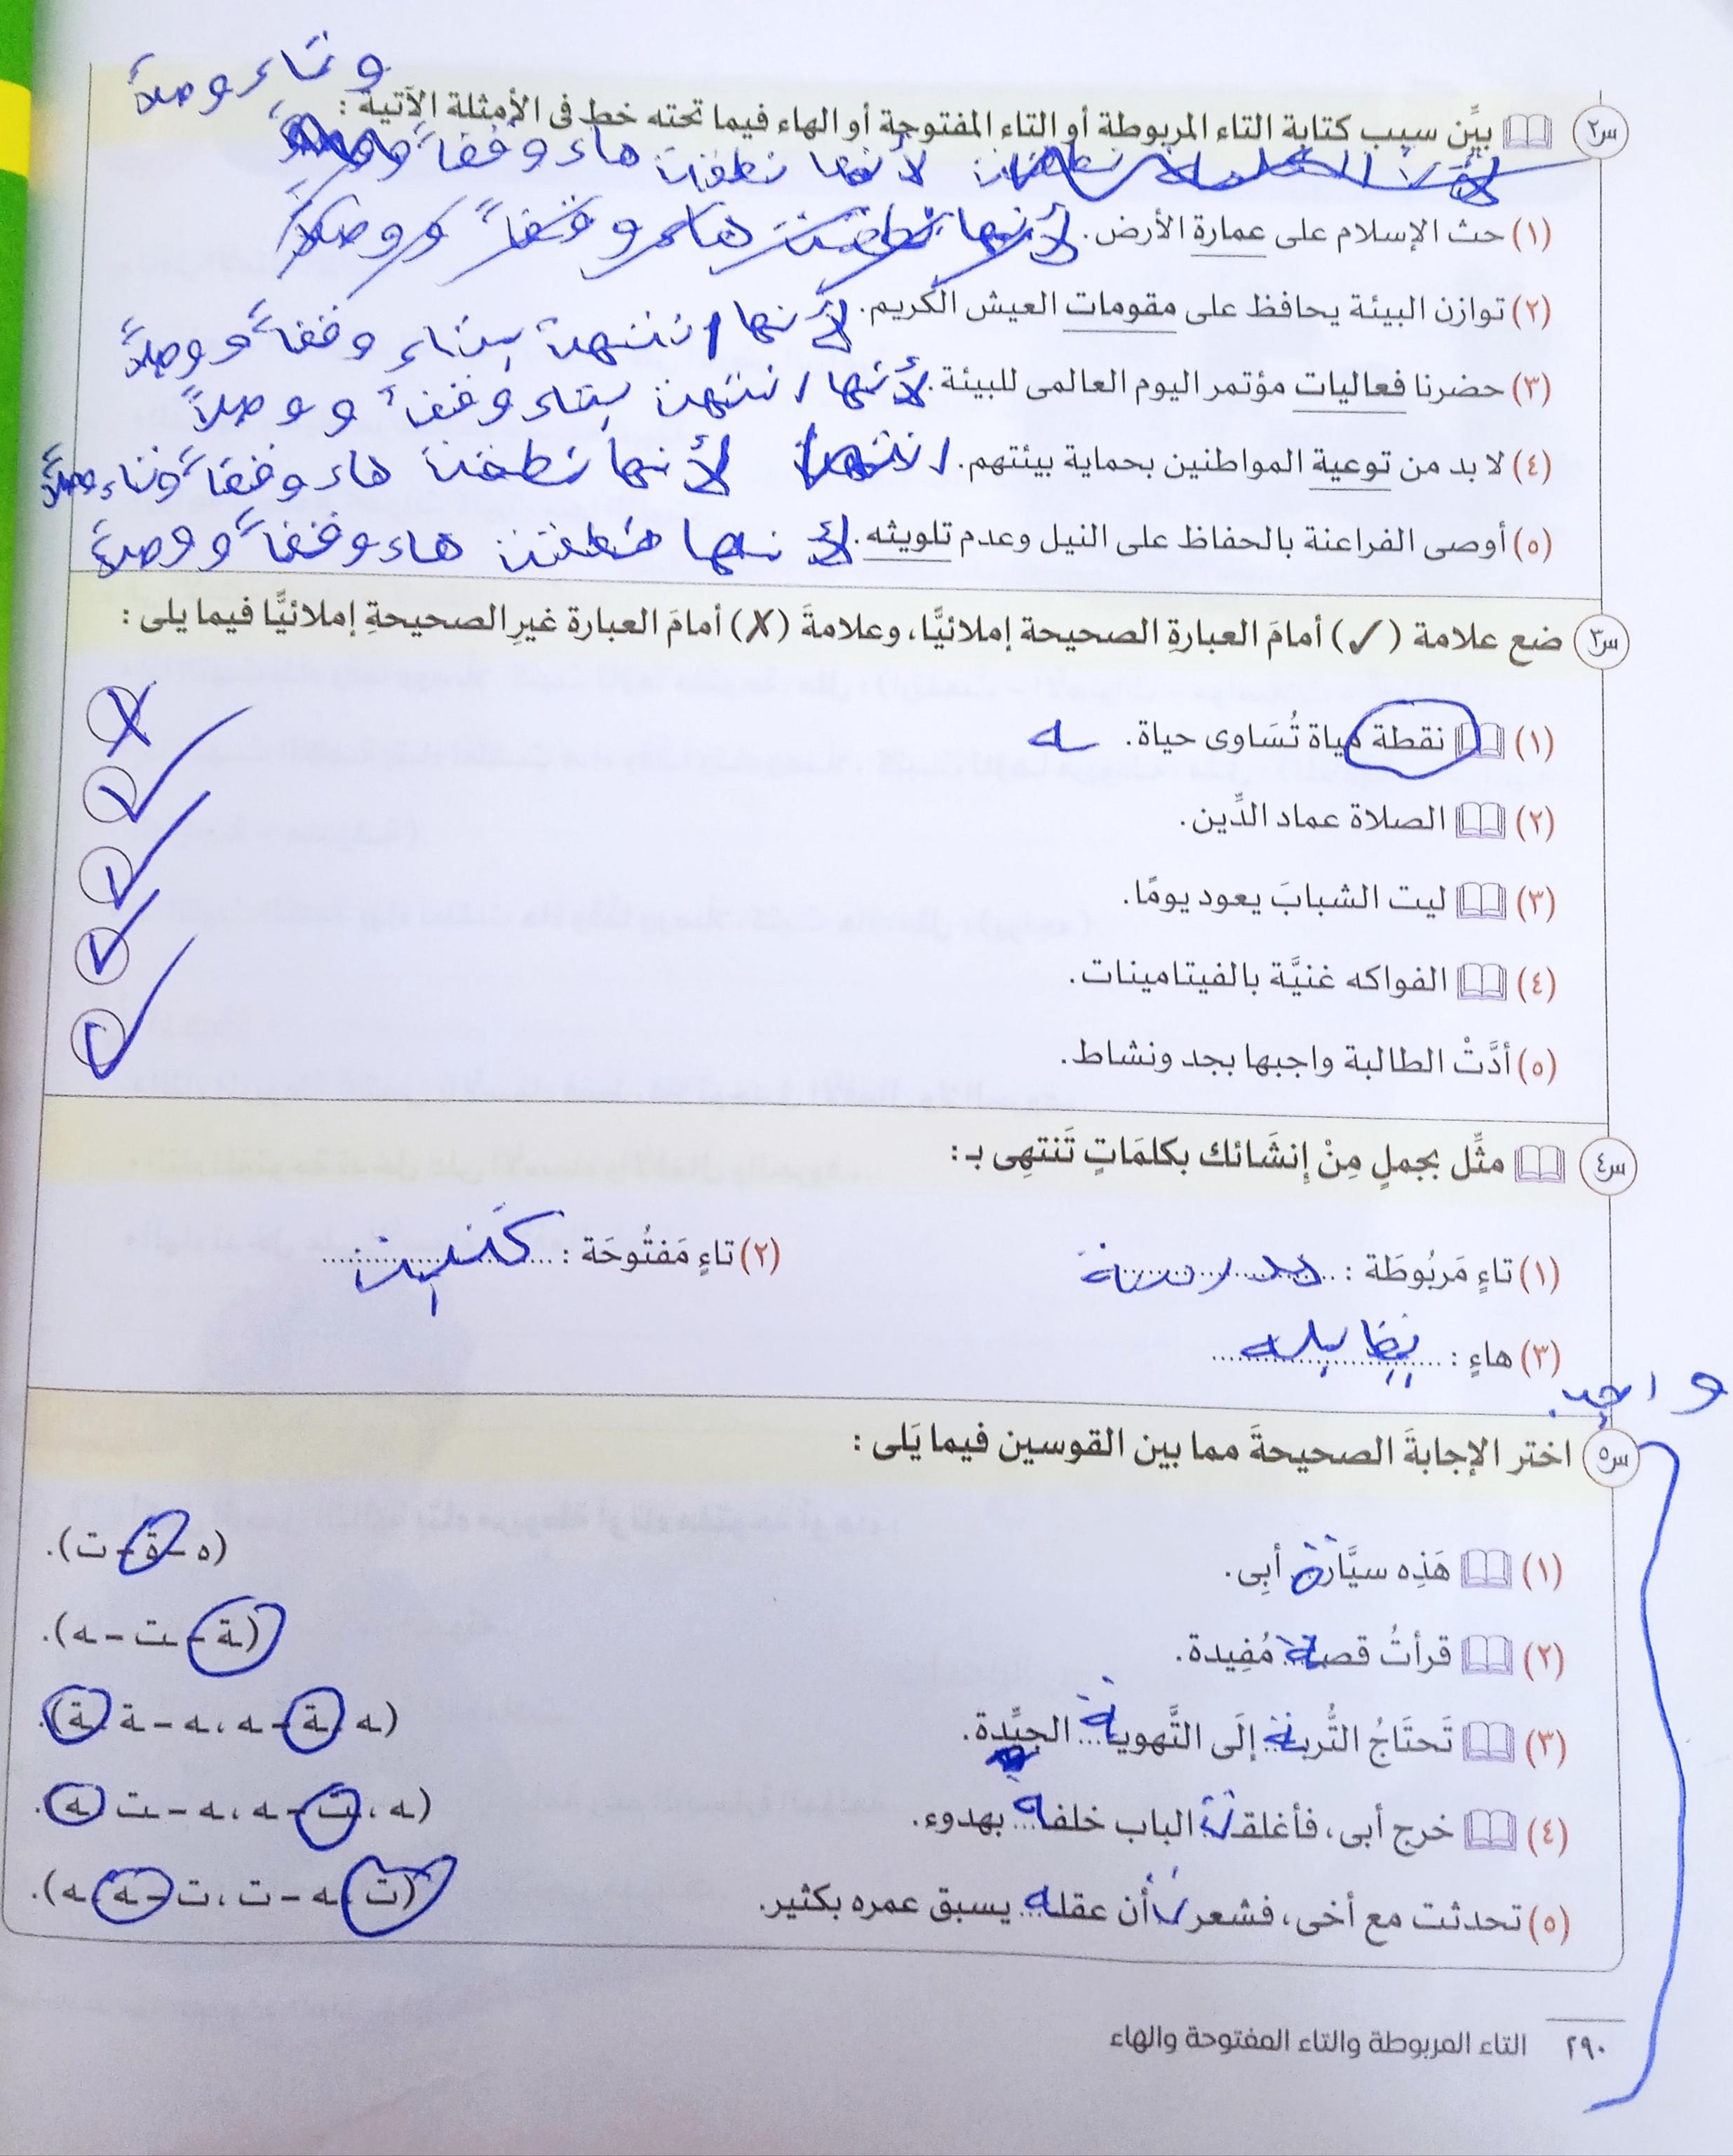 وتاء وصلاً
س٢ بيِّن سبب كتابة التاء المربوطة أو التاء المفتوحة أو الهاء فيما تحته خط فى الأمثلة الآتية :
لأنها نطقت هاء وقفاً
(١) حث الإسلام على عمارة الأرض. لأنها نطقت هاء وقفاً ووصلاً
(٢) توازن البيئة يحافظ على مقومات العيش الكريم. لأنها انتهت بتاء وقفاً ووصلاً
(٣) حضرنا فعاليات مؤتمر اليوم العالمى للبيئة. لأنها انتهت بتاء وقفاً ووصلاً
(٤) لا بد من توعية المواطنين بحماية بيئتهم. لأنها نطقت هاء وقفاً وتاء وصلاً
(٥) أوصى الفراعنة بالحفاظ على النيل وعدم تلويثه. لأنها نطقت هاء وقفاً ووصلاً
س٣ ضع علامة (✓) أمامَ العبارةِ الصحيحة إملائيًّا، وعلامةَ (✗) أمامَ العبارة غيرِ الصحيحةِ إملائيًّا فيما يلى :
(١) نقطة مياة تُسَاوى حياة. ـه ✗
(٢) الصلاة عماد الدِّين. ✓
(٣) ليت الشبابَ يعود يومًا. ✓
(٤) الفواكه غنيَّة بالفيتامينات. ✓
(٥) أدَّتْ الطالبة واجبها بجد ونشاط. ✓
س٤ مثِّل بجملٍ مِنْ إنشَائك بكلمَاتٍ تَنتهِى بـ :
(١) تاءٍ مَربُوطَة : مدرسة (٢) تاءٍ مَفتُوحَة :
(٣) هاءٍ : يقابله
واجب
س٥ اختر الإجابةَ الصحيحةَ مما بين القوسين فيما يَلى :
(١) هَذِه سيَّارة أبِى. (ه – ة – ت).
(٢) قرأتُ قصة مُفِيدة. (ـة – ـت – ـه).
(٣) تَحتَاجُ التُّربة إلَى التَّهوية الجيِّدة. (ـه ، ـة – ـه ، ـه – ـة ، ـة).
(٤) خرج أبى، فأغلقت الباب خلفه بهدوء. (ـه ، ـت – ـه ، ـه – ـت ، ـه).
(٥) تحدثت مع أخى، فشعرت أن عقله يسبق عمره بكثير. (ت ، ـه – ت ، ت – ـه ، ـه).
٢٩٠ التاء المربوطة والتاء المفتوحة والهاء